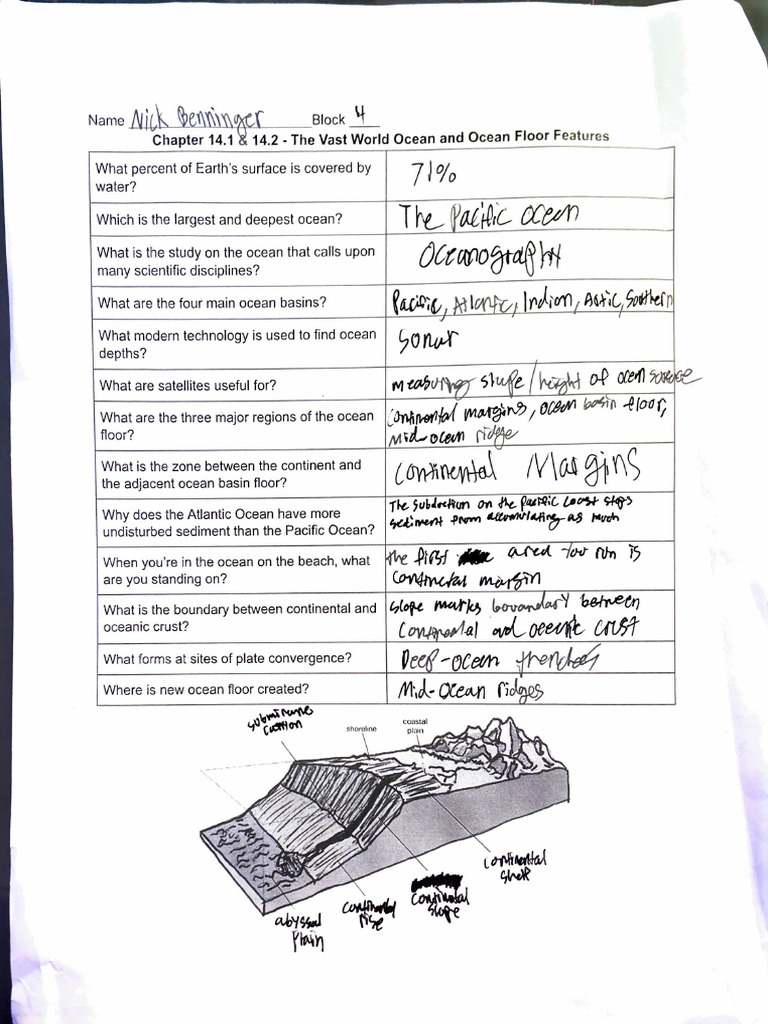 Name Nick Benninger Block 4
Chapter 14.1 & 14.2 - The Vast World Ocean and Ocean Floor Features
What percent of Earth's surface is covered by
water?
71%
Which is the largest and deepest ocean?
The Pacific ocean
What is the study on the ocean that calls upon
many scientific disciplines?
Oceanography
What are the four main ocean basins?
Pacific, Atlantic, Indian, Actic, Southern
What modern technology is used to find ocean
depths?
Sonar
What are satellites useful for?
measuring shape/height of ocean surface
What are the three major regions of the ocean
floor?
Continental margins, ocean basin floor,
Mid-ocean ridge
What is the zone between the continent and
the adjacent ocean basin floor?
Continental Margins
Why does the Atlantic Ocean have more
undisturbed sediment than the Pacific Ocean?
The subduction on the Pacific coast stops
sediment from accumulating as much
When you're in the ocean on the beach, what
are you standing on?
the first area you run is
continental margin
What is the boundary between continental and
oceanic crust?
slope marks boundary between
continental and oceanic crust
What forms at sites of plate convergence?
Deep-ocean trenches
Where is new ocean floor created?
Mid-Ocean ridges
submarine
canyon
shoreline
coastal
plain
continental
shelf
continental
slope
continental
rise
abyssal
plain